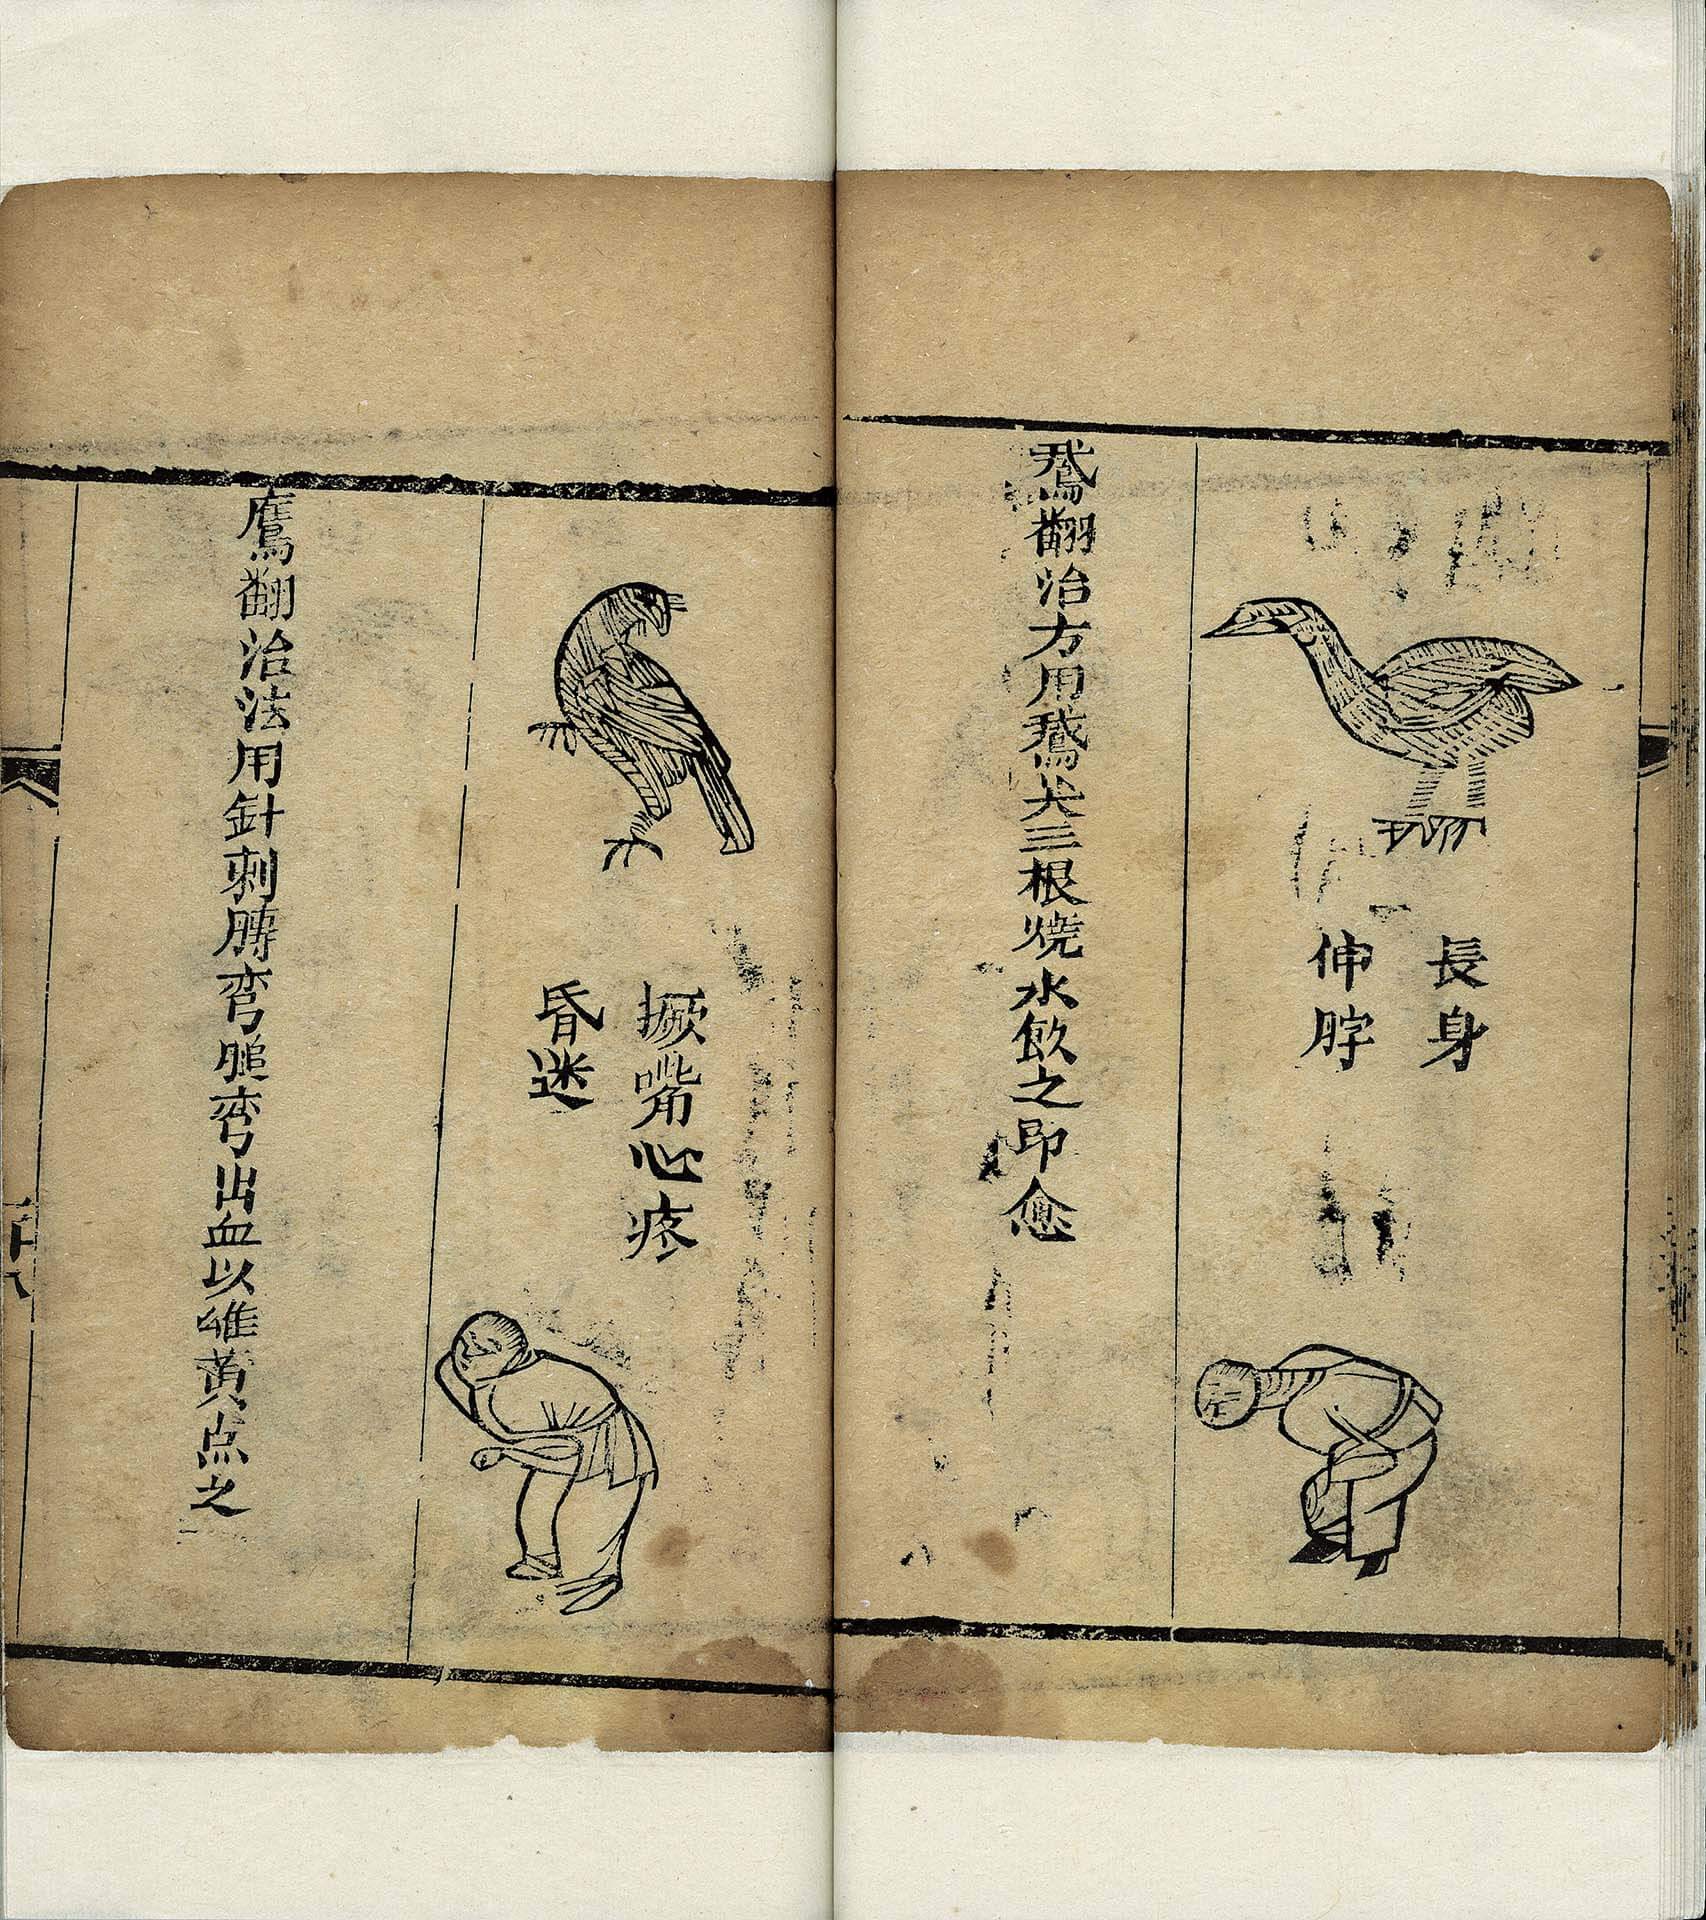 長身
伸脖
鵞翻治方用鵞犬三根燒水飲之即愈
撅嘴心疼
昏迷
鷹翻治法用針刺䏝弯腿弯出血以雄黄点之
十八